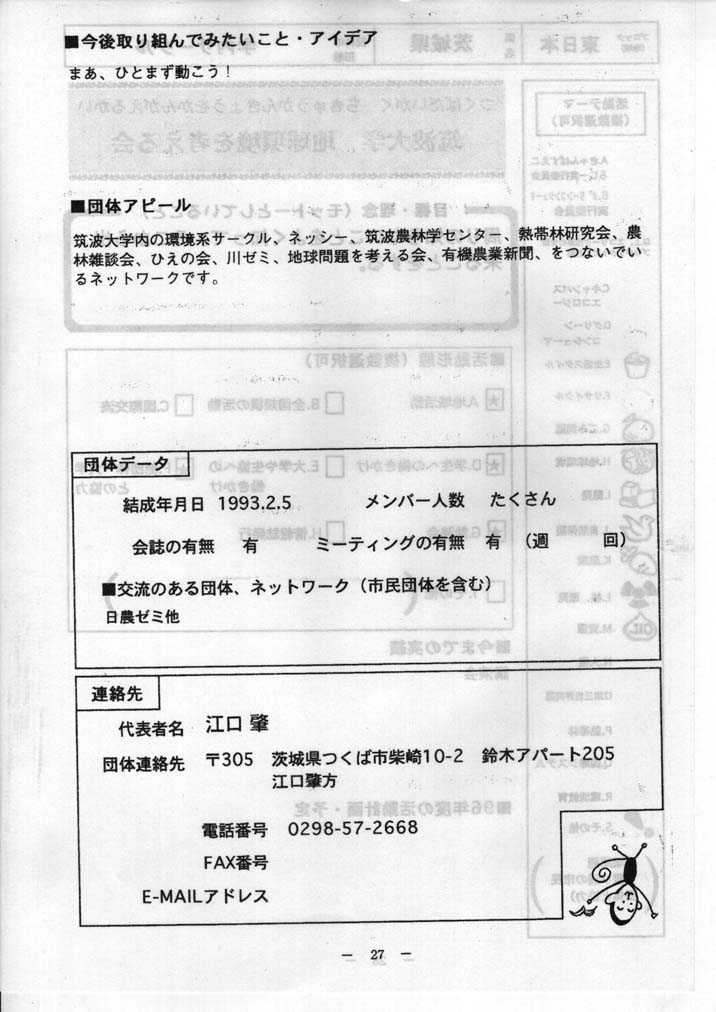 ■今後取り組んでみたいこと・アイデア
まあ、ひとまず動こう！
■団体アピール
筑波大学内の環境系サークル、ネッシー、筑波農林学センター、熱帯林研究会、農
林雑談会、ひえの会、川ゼミ、地球問題を考える会、有機農業新聞、をつないでい
るネットワークです。
団体データ
結成年月日 1993.2.5 メンバー人数 たくさん
会誌の有無 有 ミーティングの有無 有 （週 回）
■交流のある団体、ネットワーク（市民団体を含む）
日農ゼミ他
連絡先
代表者名 江口 肇
団体連絡先 〒305 茨城県つくば市柴崎10-2 鈴木アパート205
江口肇方
電話番号 0298-57-2668
FAX番号
E-MAILアドレス
— 27 —